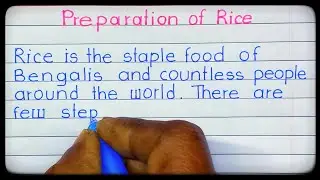 Preparation of Rice
Rice is the staple food of
Bengalis and countless people
around the world. There are
few step